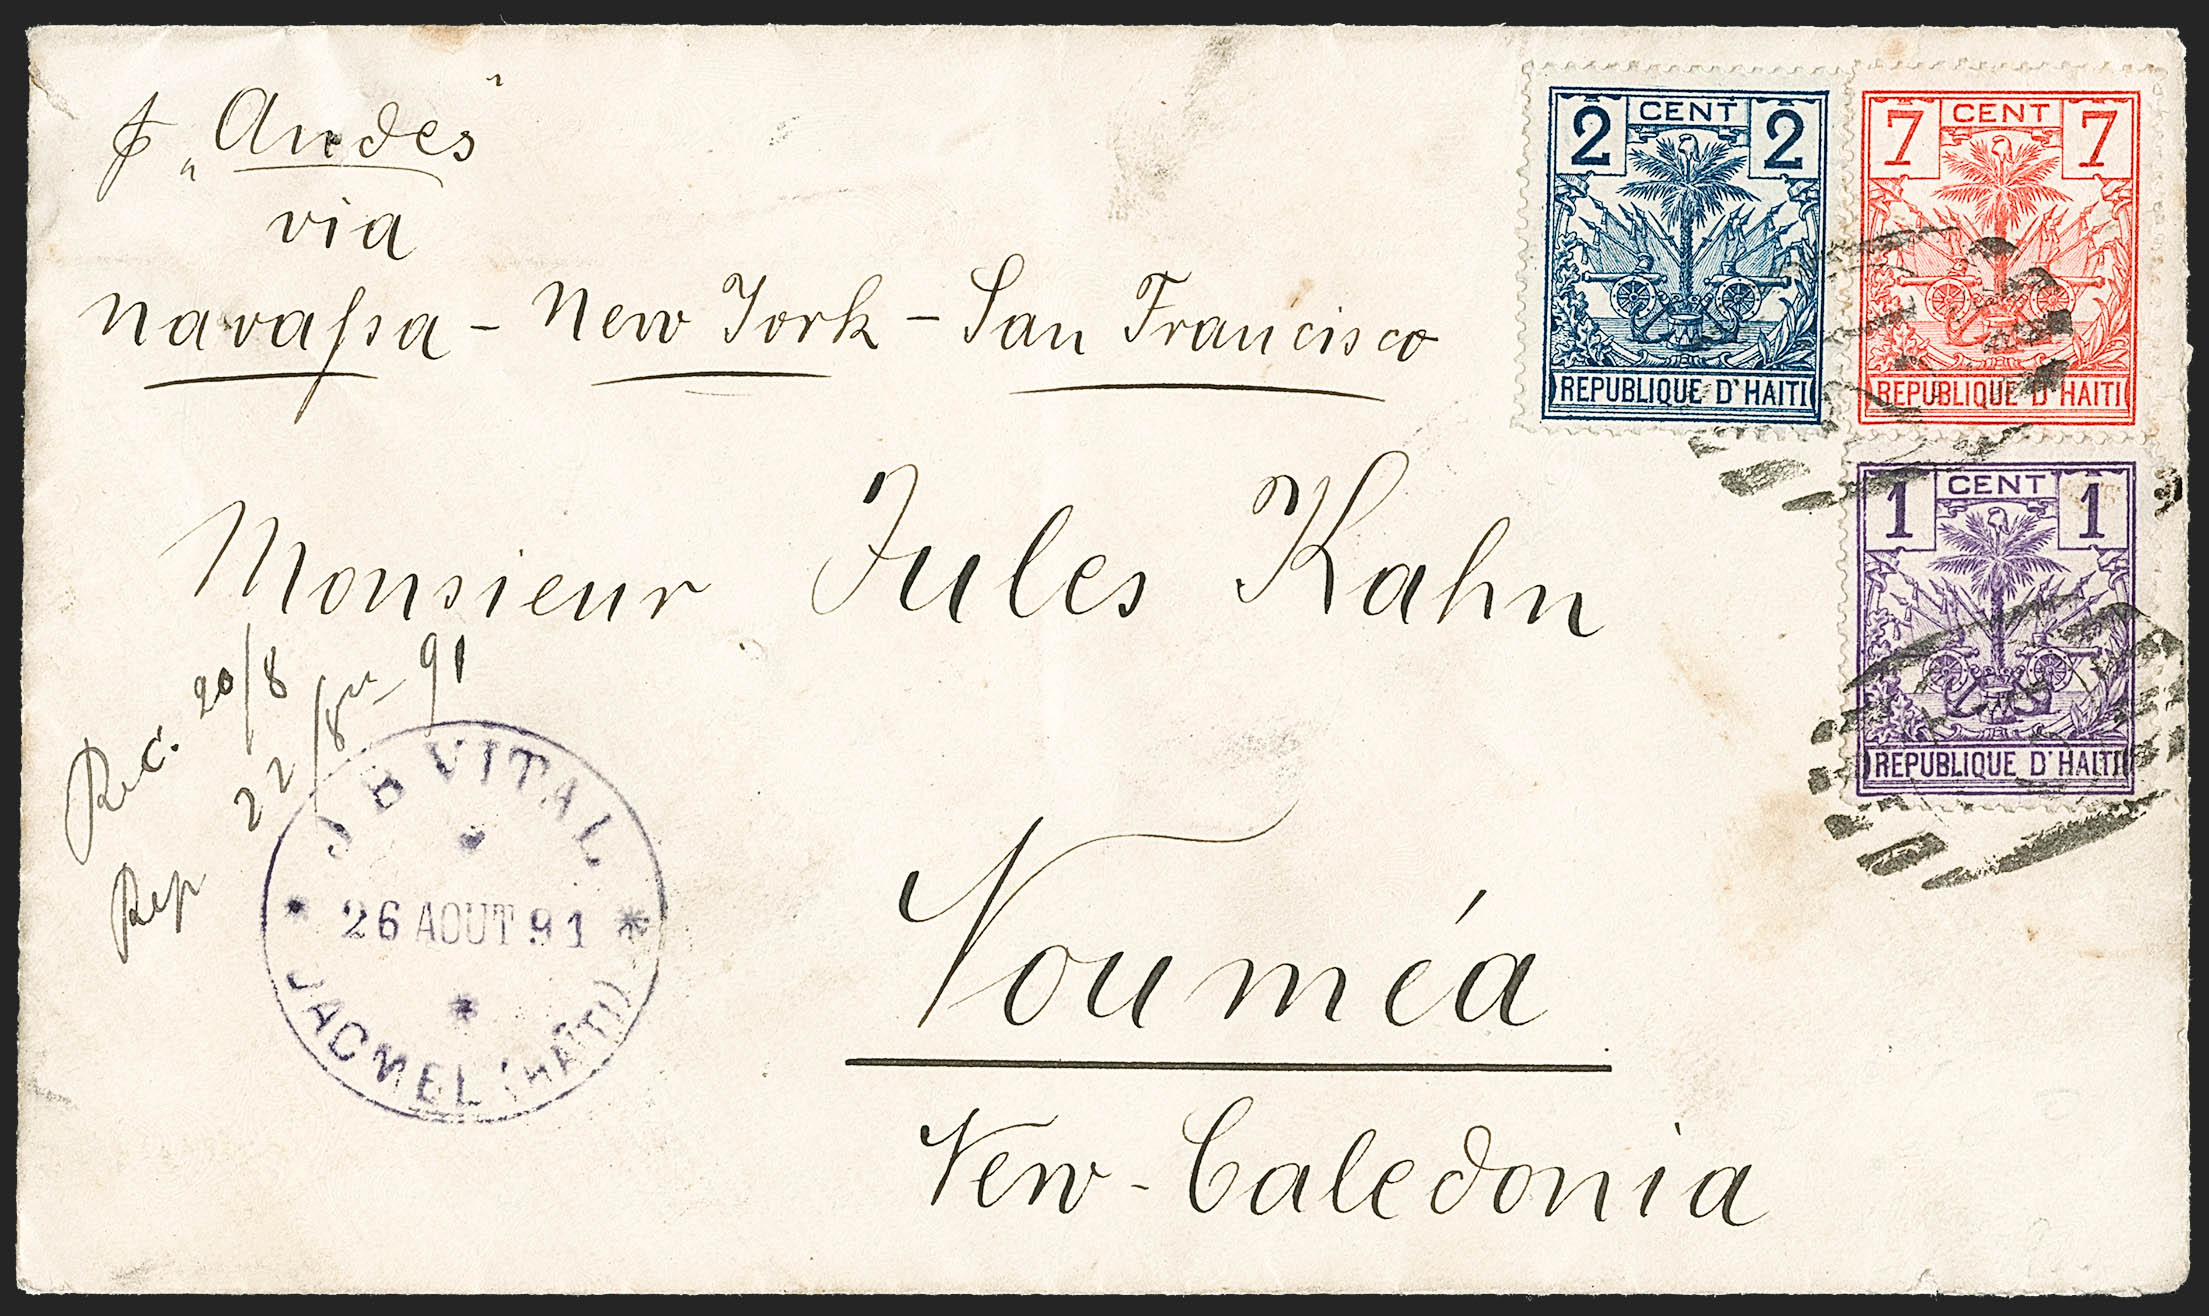 p „Andes“
via
Navassa - New York - San Francisco
Monsieur Jules Kahn
Nouméa
New-Caledonia
Rec. 20/8
Rep 22/8 91
J B VITAL
26 AOUT 91
JACMEL (HAÏTI)
2 CENT 2
REPUBLIQUE D'HAITI
7 CENT 7
REPUBLIQUE D'HAITI
1 CENT 1
REPUBLIQUE D'HAITI